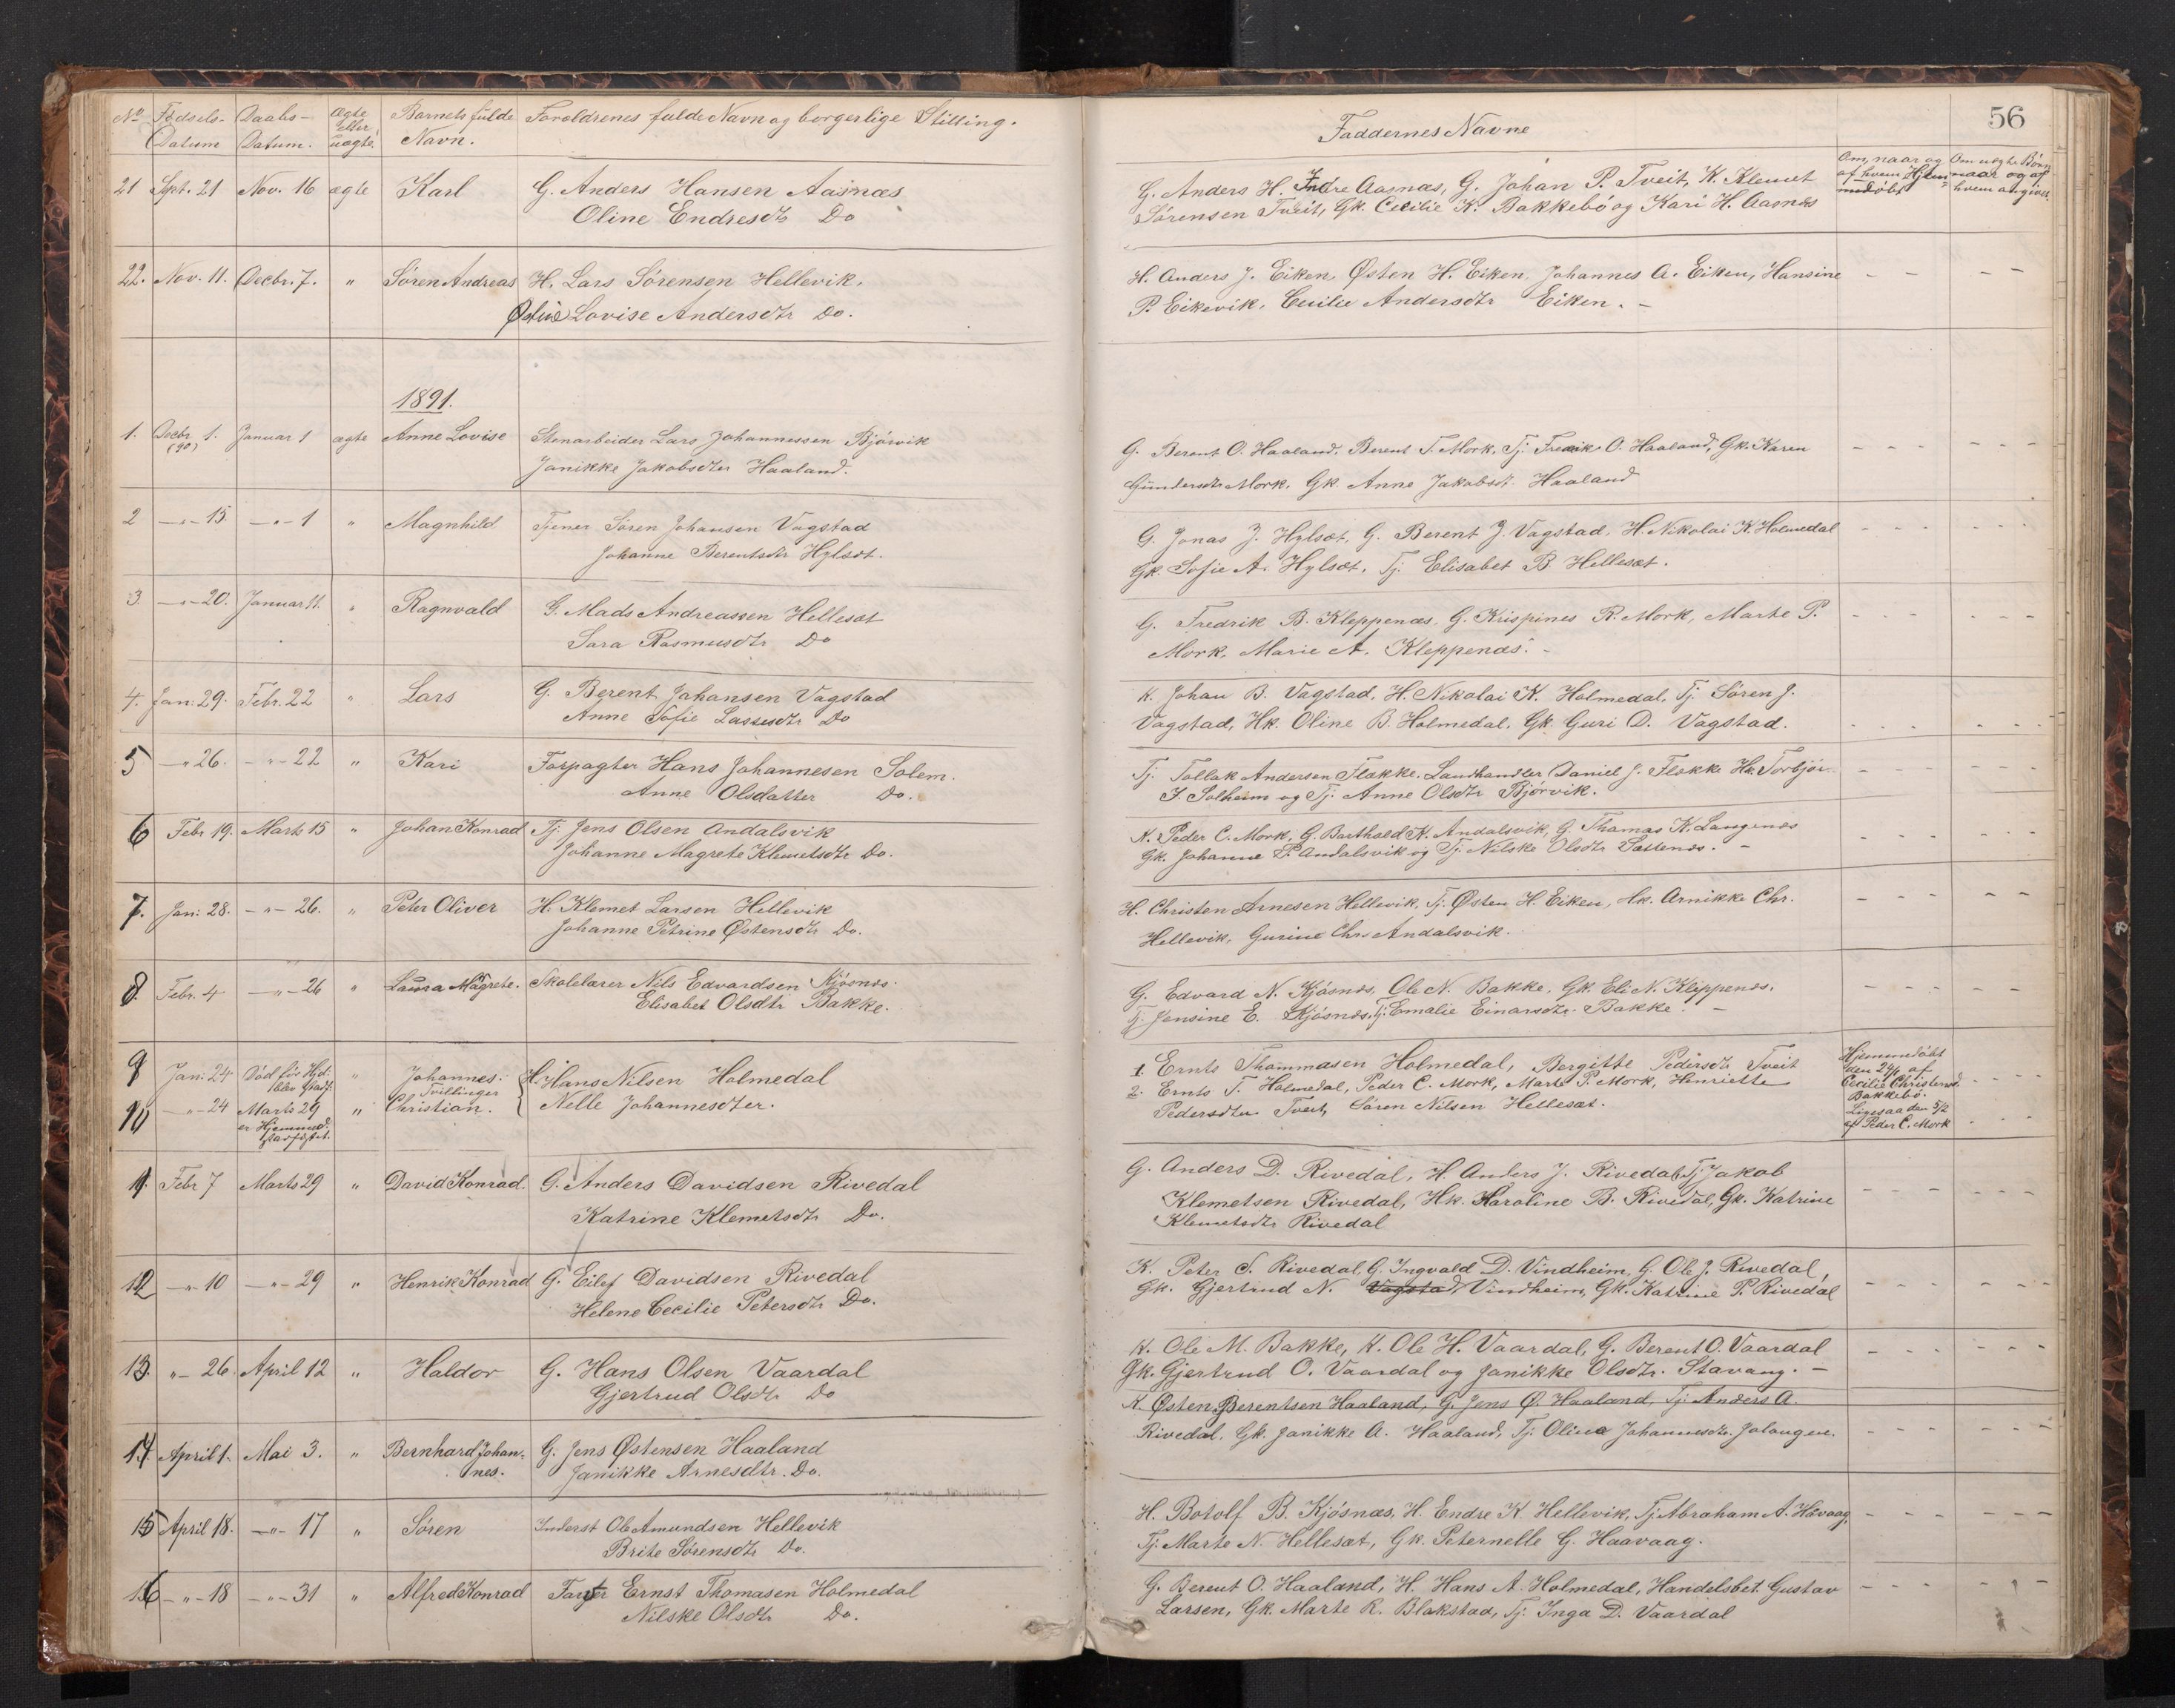 No Fødsels- Daabs- Ægte Barnets fulde Foreldrenes fulde Navn og borgerlige Stilling.
Datum Datum. eller uægte. Navn.
21 Spt. 21 Nov. 16 ægte Karl G. Anders Hansen Aasnæs
Oline Endresdtr Do
22. Nov. 11. Decbr. 7. " Søren Andreas H. Lars Sørensen Hellevik.
Østine Lovise Andersdtr Do.
1891.
1. Decbr (90) 1. Januar 1 ægte Anne Lovise Stenarbeider Lars Johannessen Bjørvik
Janikke Jakobsdter Haaland.
2 -"- 15. -"- 1 " Magnhild Tjener Søren Johansen Vagstad
Johanne Berentsdtr Hylsæt.
3. -"- 20. Januar 11. " Ragnvald G. Mads Andreassen Hellesæt
Sara Rasmusdtr Do
4. Jan: 29. Febr. 22 " Lars G. Berent Johansen Vagstad
Anne Sofie Lassesdtr Do
5 -" 26. -"- 22 " Kari Forpagter Hans Johannesen Solem.
Anne Olsdatter Do.
6 Febr 19. Marts 15 " Johan Konrad Tj. Jens Olsen Andalsvik
Johanne Magrete Klemetsdtr Do.
7. Jan: 28. -"- 26. " Peter Oliver H. Klemet Larsen Hellevik
Johanne Petrine Østensdtr Do.
8. Febr. 4 -"- 26 " Laura Magrete. Skolelærer Nils Edvardsen Kjøsnæs.
Elisabet Olsdtr Bakke.
9 Jan: 24 Død før Hjd: blev stadf: " Johannes. H. Hans Nilsen Holmedal
Tvillinger
10 -"- 24 Marts 29 " Christian. Nelle Johannesdter.
er Hjemmed. stadfæstet.
11. Febr 7 Marts 29 " David Konrad. G. Anders Davidsen Rivedal
Katrine Klemetsdtr Do.
12 -"- 10 -"- 29 " Henrik Konrad G. Eilef Davidsen Rivedal
Helene Cecilie Petersdtr Do.
13. "- 26. April 12 " Haldor G. Hans Olsen Vaardal
Gjertrud Olsdtr Do
14. April 1. Mai 3. " Bernhard Johan- G. Jens Østensen Haaland
nes. Janikke Arnesdtr. Do.
15 April 18. -"- 17 " Søren Inderst Ole Amundsen Hellevik
Brite Sørensdtr Do.
16 -"- 18 -"- 31 " Alfred Konrad Ernst Thomasen Holmedal
Nilske Olsdtr Do.
56
Faddernes Navne
Om, naar og af hvem Hjemmedøbt
Om uægte Børn naar og af hvem angivet.
G. Anders H. Indre Aasnæs, G. Johan P. Tveit, K. Klemet
Sørensen Tveit, Gk. Cecilie K. Bakkebø og Kari H. Aasnæs
H. Anders J. Eiken, Østen H. Eiken, Johannes A. Eiken, Hansine - - - -
P. Eikevik, Cecilie Andersdtr Eiken. -
G. Berent O. Haaland, Berent T. Mork, Tj. Fredrik O. Haaland, Gk. Karen - - - - -
Gundersdtr Mork, Gk. Anne Jakobsdr. Haaland
G. Jonas J. Hylsæt, G. Berent J. Vagstad, H. Nikolai K. Holmedal - - - - - -
Gk. Sofie A. Hylsæt, Tj. Elisabet B Hellesæt.
G. Fredrik B. Kleppenæs, G. Krispines R. Mork, Marte P. - - - - - -
Mork, Marie A. Kleppenæs. -
K. Johan B. Vagstad, H. Nikolai K. Holmedal, Tj. Søren J.
Vagstad, Hk. Oline B. Holmedal, Gk Guri D. Vagstad. - - - - - -
Tj. Tollak Andersen Flække, Landhandler Daniel J. Flekke Hk. Torbjør - - - - - -
J. Solheim og Tj. Anne Olsdtr Bjørvik.
K. Peder C. Mork, G. Barthold K. Andalsvik, G. Thomas K. Langenæs - - - - - -
Gk. Johanne P. Andalsvik og Tj. Nilske Olsdtr Sættenæs. -
H. Christen Arnesen Hellevik, Tj. Østen H. Eiken, Hk. Arnikke Chr. - - - - - -
Hellevik, Gurine Chr. Andalsvik.
G. Edvard N. Kjøsnæs, Ole N. Bakke, Gk. Eli N. Kleppenæs. - - - - - -
Tj. Jensine E. Kjøsnæs, Tj. Emalie Einarsdtr. Bakke. -
1. Ernts Thommasen Holmedal, Bergitte Pedersdtr Tveit
2. Ernts T. Holmedal, Peder C. Mork, Marte P. Mork, Henriette
Pedersdter Tveit, Søren Nilsen Hellesæt.
Hjemmedøbt
den 24/1 af
Cecilie Christensd.
Bakkebø.
Ligesaa den 5/2
af Peder C. Mork
G. Anders D. Rivedal, H. Anders J. Rivedal, Tj. Jakob
Klemetsen Rivedal, Hk. Karoline B. Rivedal, Gk. Katrine - - - - - -
Klemetsdtr Rivedal
K. Peter S. Rivedal, G. Ingvald D. Vindheim, G. Ole J. Rivedal,
Gk. Gjertrud N. Vagstad Vindheim, Gk. Katrine P. Rivedal - - - - - -
K. Ole M. Bakke, K. Ole H. Vaardal, G. Berent O. Vaardal
Gk. Gjertrud O. Vaardal og Janikke Olsdtr. Stavang. - - - - - - -
K. Østen Berentsen Haaland, G. Jens Ø. Haaland, Tj. Anders A.
Rivedal, Gk. Janikke A. Haaland, Tj. Oline Johannesdtr. Jolangen. - - - - - -
H. Botolf B. Kjøsnæs, H. Endre K. Hellevik, Tj. Abraham A. Håvaag, - - - - - -
Tj. Marte N. Hellesæt, Gk. Peternelle G. Haavaag.
G. Berent O. Haaland, H. Hans A. Holmedal, Handelsbet. Gustav - - - - -
Larsen, Gk. Marte R. Blakstad, Tj. Inga D. Vaardal